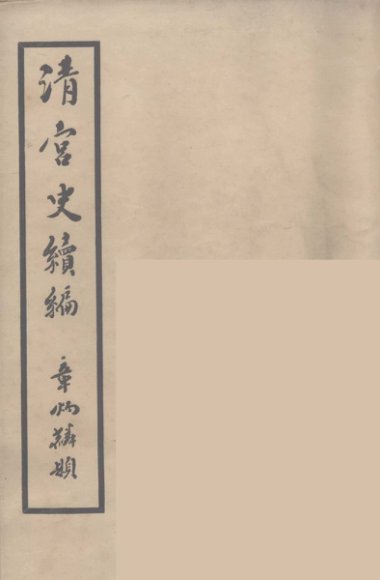 清宮史續編
章炳麟題